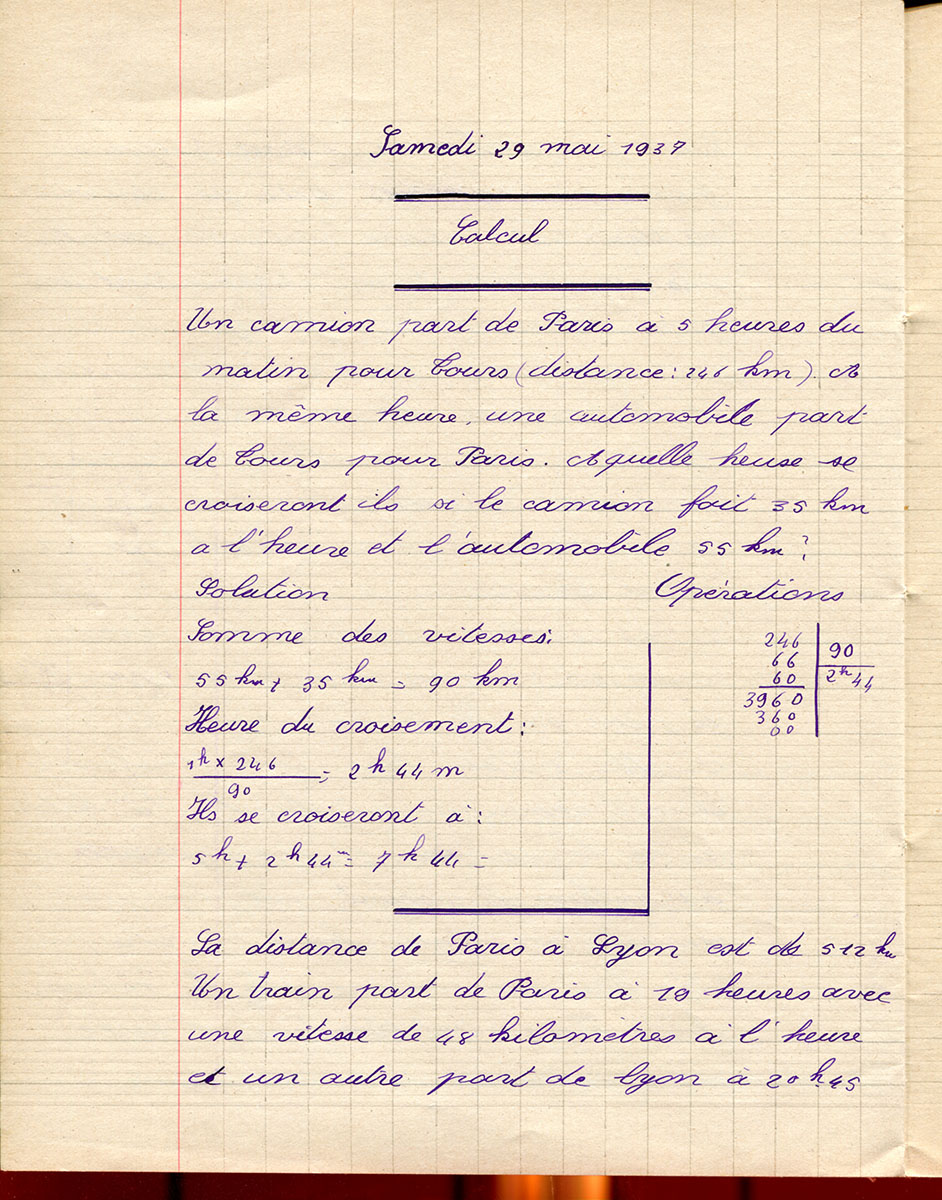 Samedi 29 mai 1937
Calcul
Un camion part de Paris à 5 heures du
matin pour Tours (distance: 246 km). A
la même heure, une automobile part
de Tours pour Paris. A quelle heuse se
croiseront ils si le camion fait 35 km
a l'heure et l'automobile 55 km?
Solution
Opérations
Somme des vitesses:
55 km + 35 km = 90 km
Heure du croisement:
1h × 246
90
= 2 h 44 m
Ils se croiseront à:
5h + 2h44m = 7h 44 =
246
66
60
3960
360
00
90
2h44
La distance de Paris à Lyon est de 512 km
Un train part de Paris à 19 heures avec
une vitesse de 48 kilomètres à l'heure
et un autre part de Lyon à 20 h.45